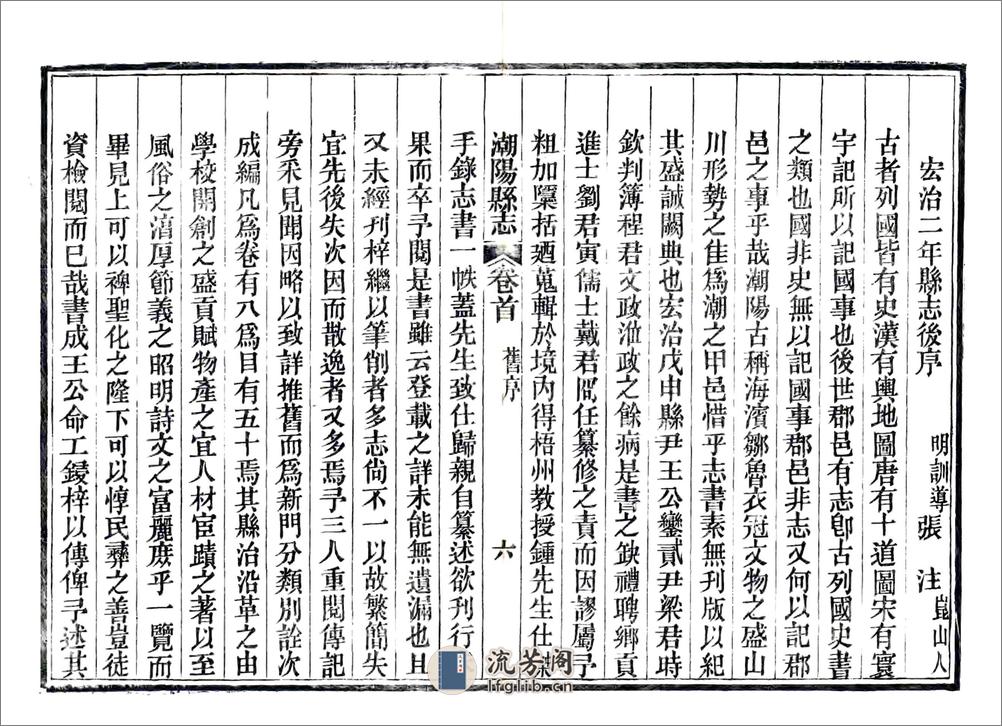 宏治二年縣志後序 明訓導張 注崑山人
古者列國皆有史漢有輿地圖唐有十道圖宋有寰
宇記所以記國事也後世郡邑有志卽古列國史書
之類也國非史無以記國事郡邑非志又何以記郡
邑之事乎哉潮陽古稱海濱鄒魯衣冠文物之盛山
川形勢之佳爲潮之甲邑惜乎志書素無刊版以紀
其盛誠闕典也宏治戊申縣尹王公鑾貳尹梁君時
欽判簿程君文政涖政之餘病是書之缺禮聘鄉貢
進士劉君寅儒士戴君 任纂修之責而因謬屬予
粗加檃括廼蒐輯於境內得梧州教授鍾先生仕
潮陽縣志 卷首 舊序 六
手錄志書一帙蓋先生致仕歸親自纂述欲刊行未
果而卒予閱是書雖云登載之詳未能無遺漏也且
又未經刊梓繼以筆削者多志尚不一以故繁簡失
宜先後失次因而散逸者又多焉予三人重閱傳記
旁釆見聞因略以致詳推舊而爲新門分類別詮次
成編凡爲卷有八爲目有五十焉其縣治沿革之由
學校開創之盛貢賦物產之宜人材宦蹟之著以至
風俗之淳厚節義之昭明詩文之富麗庶乎一覽而
畢見上可以裨聖化之隆下可以惇民彝之善豈徒
資檢閱而已哉書成王公命工鋟梓以傳俾予述其
流芳阁
lfglib.cn